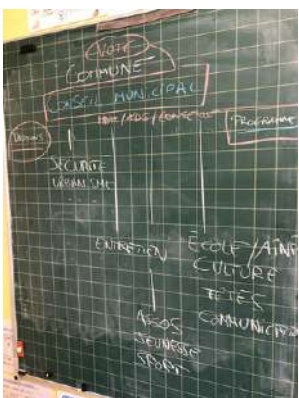 VOTE
COMMUNE
CONSEIL MUNICIPAL
PROGRAMME
SÉCURITÉ
URBANISME
ENTRETIEN
ÉCOLE/
CULTURE
FÊTES
COMMUNICATION
ASSOS
JEUNESSE
SPORT